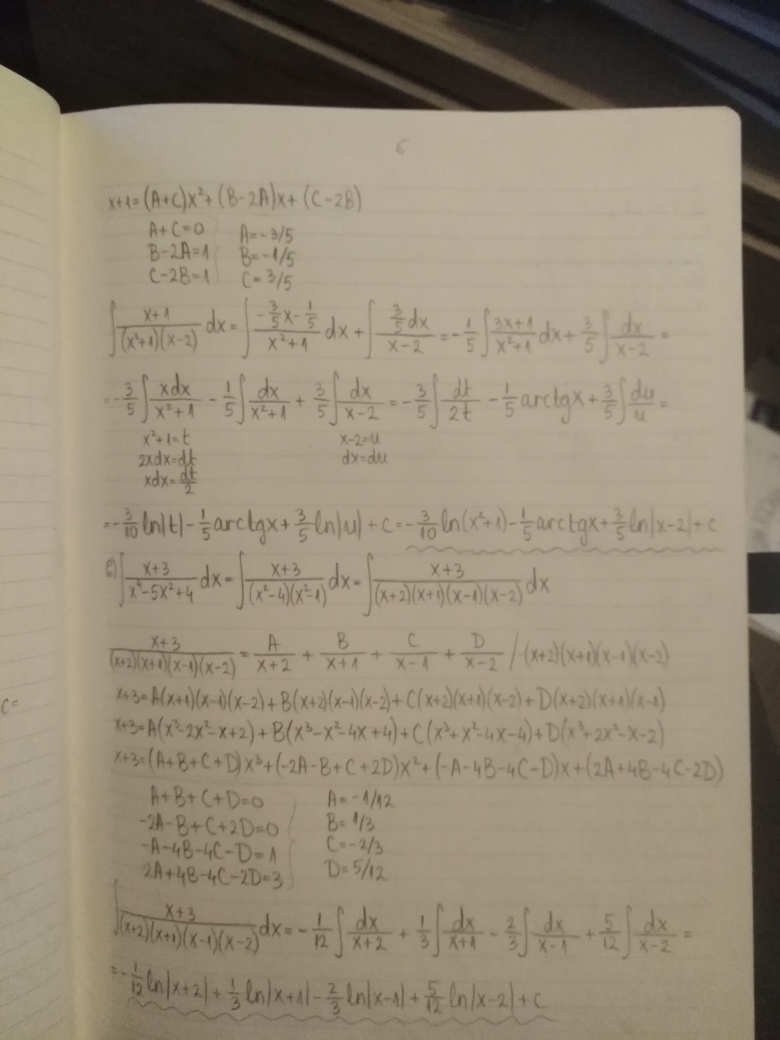 6
x+1=(A+C)x²+(B-2A)x+(C-2B)
A+C=0 A=-3/5
B-2A=1 B=-1/5
C-2B=1 C=3/5
∫ (x+1)/((x²+1)(x-2)) dx = ∫ (-3/5 x - 1/5)/(x²+1) dx + ∫ (3/5 dx)/(x-2) = -1/5 ∫ (3x+1)/(x²+1) dx + 3/5 ∫ dx/(x-2) =
= -3/5 ∫ xdx/(x²+1) - 1/5 ∫ dx/(x²+1) + 3/5 ∫ dx/(x-2) = -3/5 ∫ dt/2t - 1/5 arctgx + 3/5 ∫ du/u =
x²+1=t x-2=u
2xdx=dt dx=du
xdx=dt/2
= -3/10 ln|t| - 1/5 arctgx + 3/5 ln|u| + c = -3/10 ln(x²+1) - 1/5 arctgx + 3/5 ln|x-2| + c
∫ (x+3)/(x⁴-5x²+4) dx = ∫ (x+3)/((x²-4)(x²-1)) dx = ∫ (x+3)/((x+2)(x+1)(x-1)(x-2)) dx
(x+3)/((x+2)(x+1)(x-1)(x-2)) = A/(x+2) + B/(x+1) + C/(x-1) + D/(x-2) / ·(x+2)(x+1)(x-1)(x-2)
x+3=A(x+1)(x-1)(x-2)+B(x+2)(x-1)(x-2)+C(x+2)(x+1)(x-2)+D(x+2)(x+1)(x-1)
x+3=A(x³-2x²-x+2)+B(x³-x²-4x+4)+C(x³+x²-4x-4)+D(x³+2x²-x-2)
x+3=(A+B+C+D)x³+(-2A-B+C+2D)x²+(-A-4B-4C-D)x+(2A+4B-4C-2D)
A+B+C+D=0 A=-1/12
-2A-B+C+2D=0 B=1/3
-A-4B-4C-D=1 C=-2/3
2A+4B-4C-2D=3 D=5/12
∫ (x+3)/((x+2)(x+1)(x-1)(x-2)) dx = -1/12 ∫ dx/(x+2) + 1/3 ∫ dx/(x+1) - 2/3 ∫ dx/(x-1) + 5/12 ∫ dx/(x-2) =
= -1/12 ln|x+2| + 1/3 ln|x+1| - 2/3 ln|x-1| + 5/12 ln|x-2| + c
c=